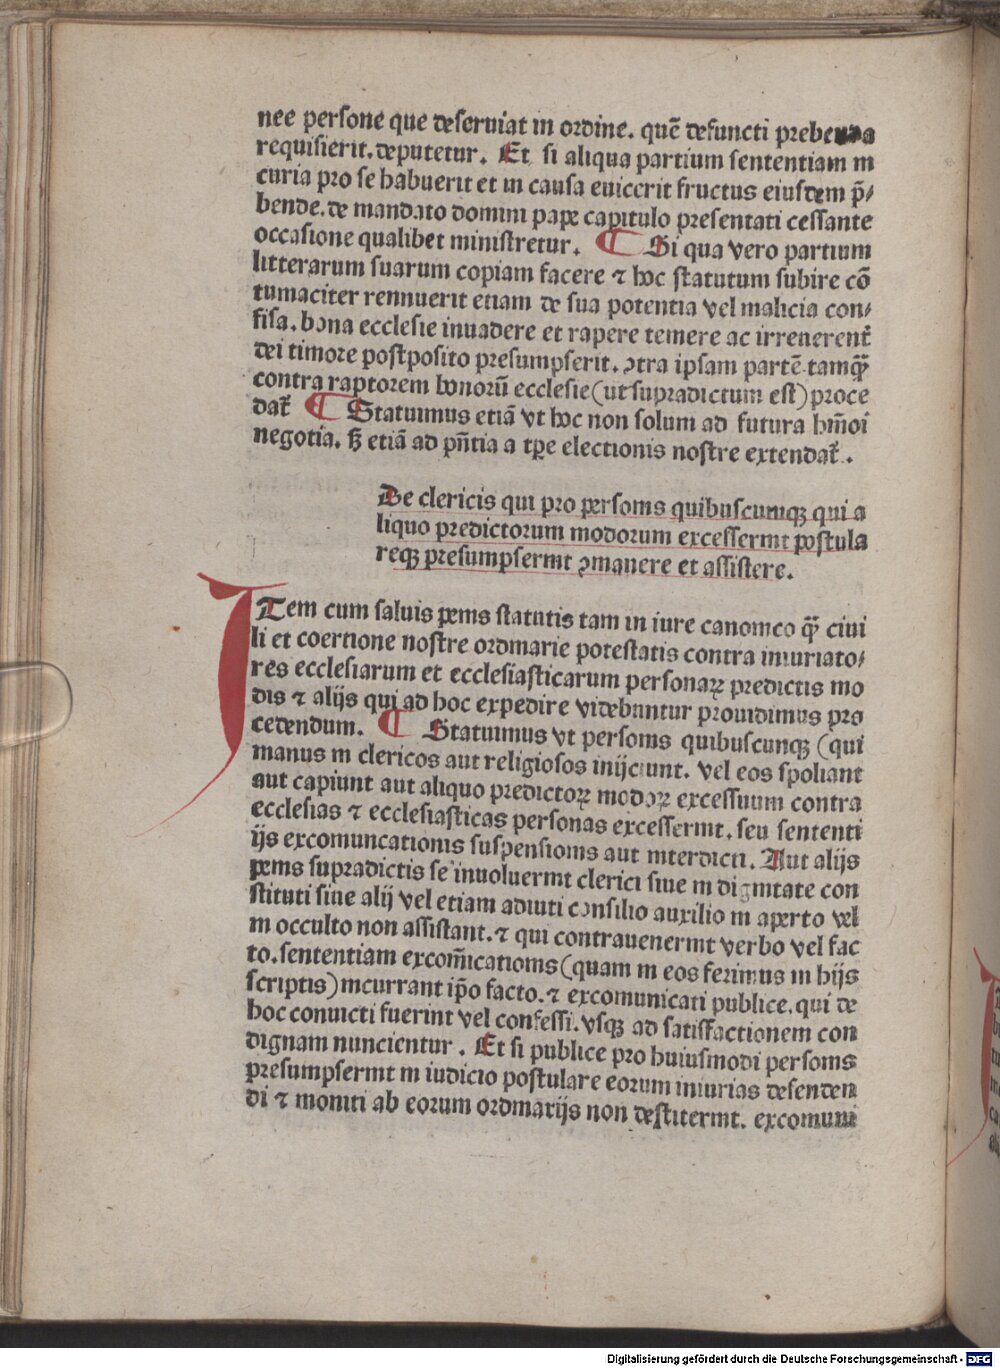 nee persone que deseruiat in ordine. quē defuncti prebenda
requisierit. deputetur. Et si aliqua partium sententiam in
curia pro se habuerit et in causa euicerit fructus eiusdem p̄⸗
bende. de mandato domini pape capitulo presentati cessante
occasione qualibet ministretur. ¶ Si qua vero partium
litterarum suarum copiam facere ⁊ hoc statutum subire cō
tumaciter rennuerit etiam de sua potentia vel malicia con⸗
fisa. bona ecclesie inuadere et rapere temere ac irreuerent̄
dei timore postposito presumpserit. ꝯtra ipsam partē tamqȝ
contra raptorem bonorū ecclesie (ut supradictum est) proce
dat̄ ¶ Statuimus etiā vt hoc non solum ad futura hm̄oi
negotia. sȝ etiā ad pn̄tia a tꝑe electionis nostre extendat̄.
De clericis qui pro personis quibuscumqȝ qui a
liquo predictorum modorum excesserint postula
reqȝ presumpserint ꝯmanere et assistere.
ITem cum saluis penis statutis tam in iure canonico qȝ ciui
li et coertione nostre ordinarie potestatis contra iniuriato⸗
res ecclesiarum et ecclesiasticarum personaꝝ predictis mo
dis ⁊ alijs qui ad hoc expedire videbantur prouidimus pro
cedendum. ¶ Statuimus vt personis quibuscunqȝ (qui
manus in clericos aut religiosos inijciunt. vel eos spoliant
aut capiunt aut aliquo predictoꝝ modoꝝ excessuum contra
ecclesias ⁊ ecclesiasticas personas excesserint. seu sententi
ijs excomunicationis suspensionis aut interdicti. Aut alijs
penis supradictis se inuoluerint clerici siue in dignitate con
stituti siue alij vel etiam adiuti consilio auxilio in aperto vel
in occulto non assistant. ⁊ qui contrauenerint verbo vel fac
to. sententiam excom̄icationis (quam in eos ferimus in hijs
scriptis) incurrant ip̄o facto. ⁊ excomunicati publice. qui de
hoc conuicti fuerint vel confessi. vsqȝ ad satisfactionem con
dignam nuncientur. Et si publice pro huiusmodi personis
presumpserint in iudicio postulare eorum iniurias defenden
di ⁊ moniti ab eorum ordinarijs non destiterint. excomuni
Digitalisierung gefördert durch die Deutsche Forschungsgemeinschaft - DFG